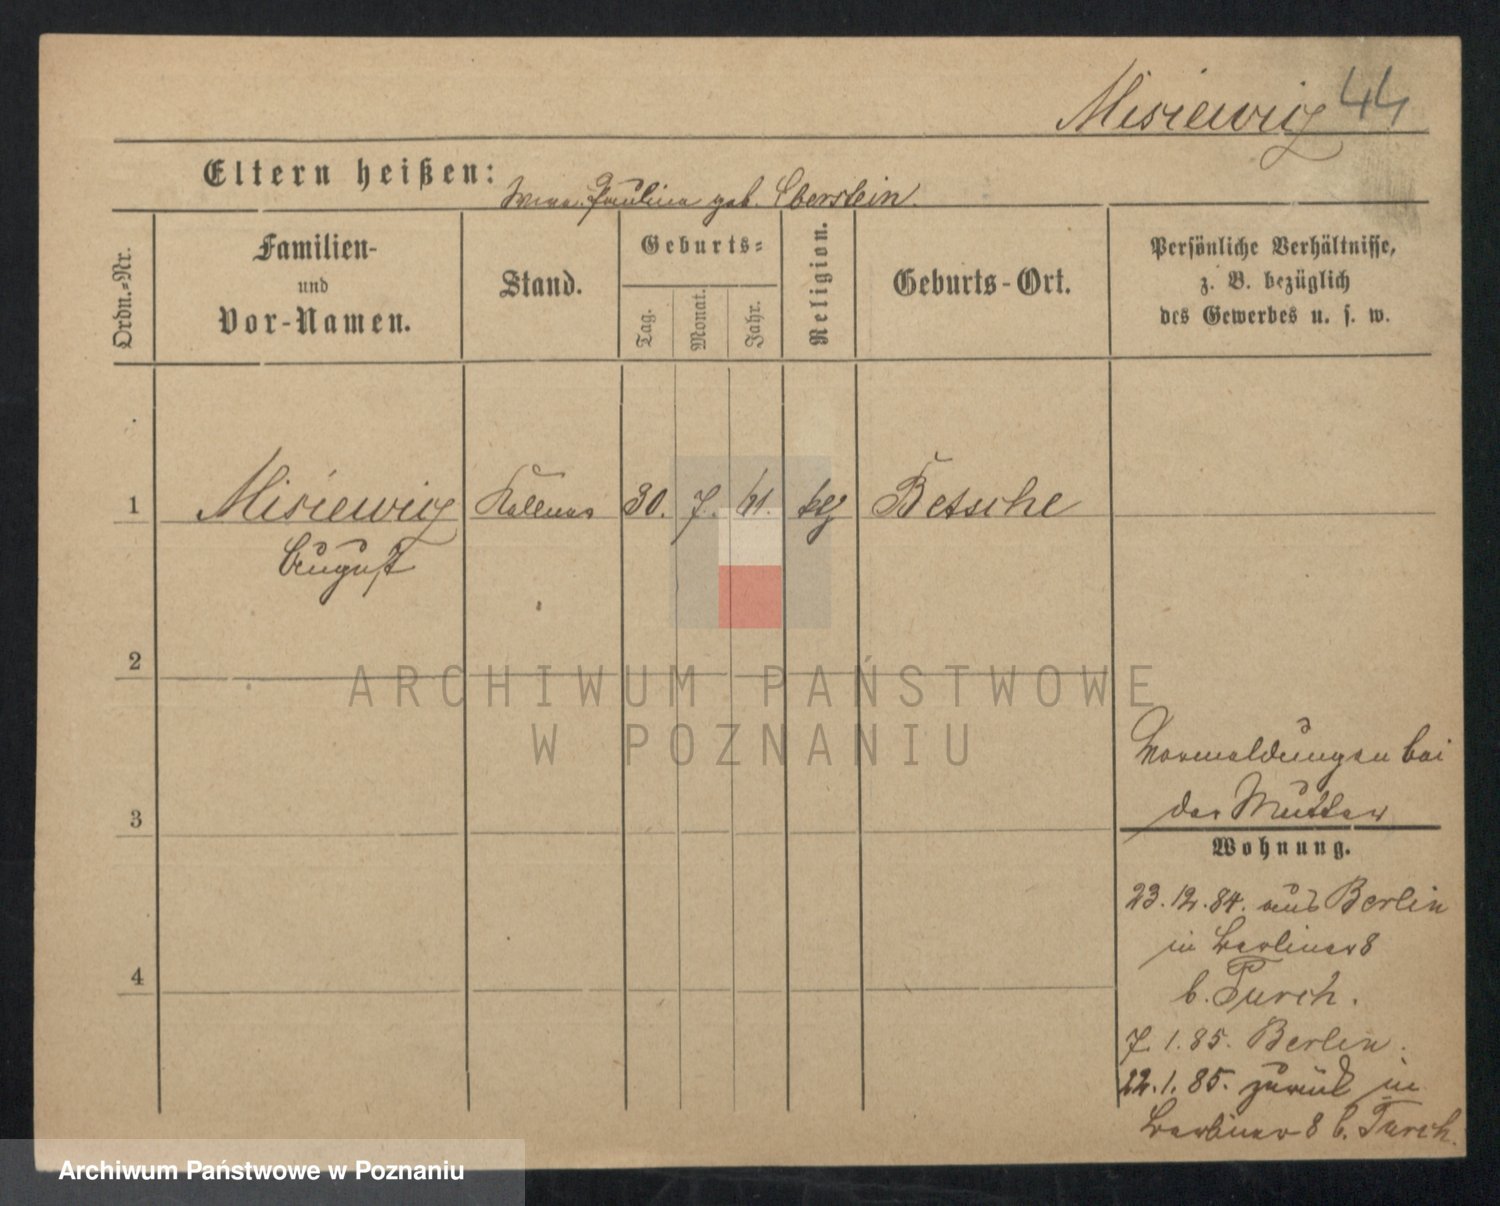 Misiewicz 44
Eltern heißen:
Paulina geb. Eberstein.
Ordn.-Nr.
Familien-
und
Vor-Namen.
Stand.
Geburts-
Tag.
Monat.
Jahr.
Religion.
Geburts-Ort.
Persönliche Verhältnisse,
z. B. bezüglich
des Gewerbes u. s. w.
1 Misiewicz Kellner 30. 7. 61. Betsche
August
2
3
4
Vormeldungen bei
der Mutter
Wohnung.
23.12.84. aus Berlin
in Berliner 8
b. Turch.
7.1.85. Berlin.
22.1.85. zurück in
Berliner 8 b. Turch.
ARCHIWUM PAŃSTWOWE
W POZNANIU
Archiwum Państwowe w Poznaniu